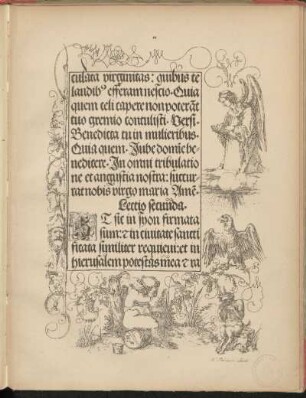 culata virginitas: quibus te
laudibꝰ efferam nescio. Quia
quem celi capere non poterāt
tuo gremio contulisti. Versi.
Benedicta tu in mulieribus.
Quia quem. Jube domic be-
nedicere. In omni tribulatio
ne et angustia nostra: succur
rat nobis virgo maria Amē.
Lectio secunda.
ET sic in syon firmata
sum: ⁊ in ciuitate sancti
ficata similiter requieui: et in
hierusalem potestas mea ⁊ ra